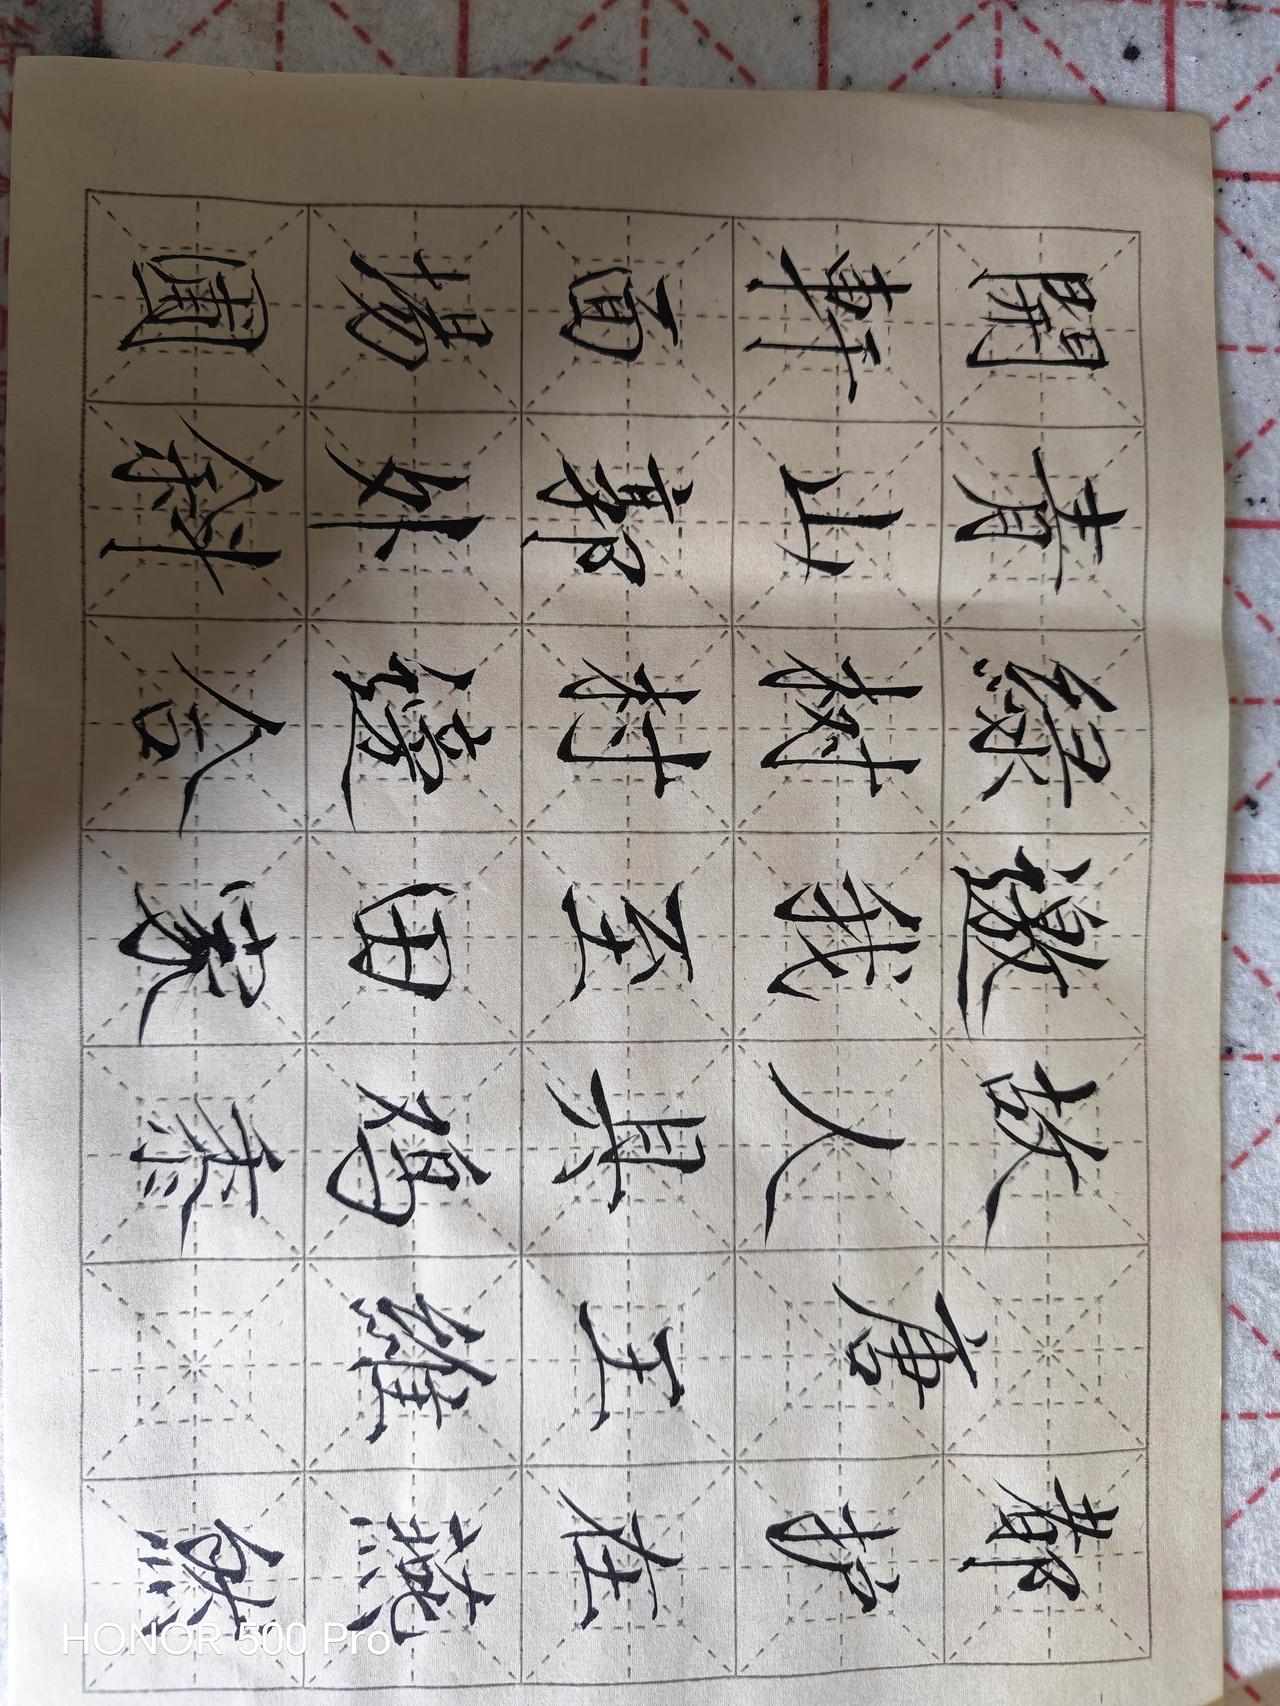 都护在燕然
唐王維
故人具鸡黍
邀我至田家
綠樹村邊合
青山郭外斜
開軒面場圃
HONOR 500 Pro